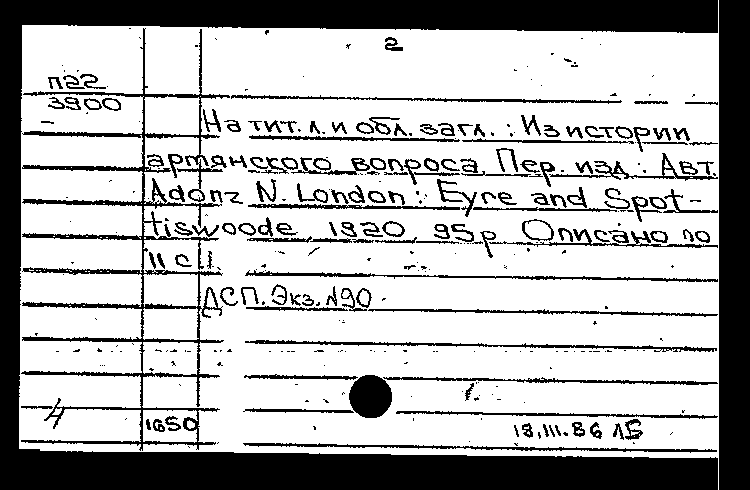 2
П22
3900
На тит. л. и обл. загл. : Из истории
армянского вопроса. Пер. изд. : Авт.
Adonz N. London : Eyre and Spot-
tiswoode, 1920, 95 p. Описано по
II с.
ДСП. Экз. №90.
4
1650
18.III.86